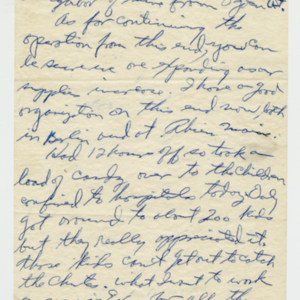 from
As for continuing the
operation from this end, you can
be sure we expanding as our
supplies increase. I have a good
organization on this end now, both
in Berlin and at Rhein Main.
Had 12 hours off so took a
load of candy over to the children
confined to hospitals today. Only
got around to about 200 kids
but they really appreciated it.
those kids can't get out to catch
the chutes. What I want to work